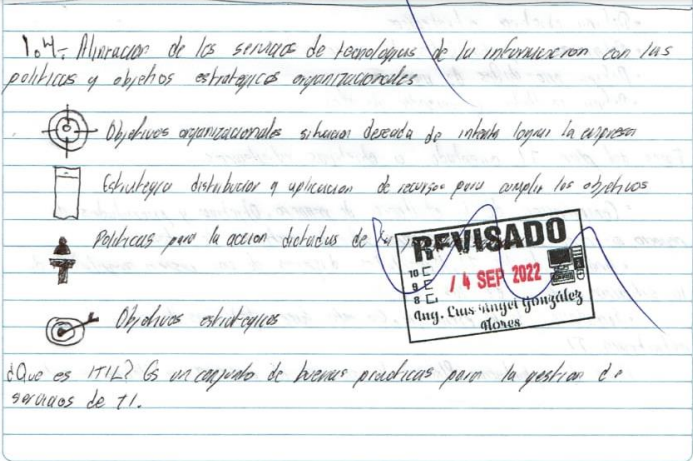 1.4.- Alineación de los servicios de tecnologías de la información con las
políticas y objetivos estratégicos organizacionales
Objetivos organizacionales situacion deseada de intenta lograr la empresa
Estrategia distribucion y aplicacion de recursos para cumplir los objetivos
Politicas para la accion dictadas de
REVISADO
10
9
8
14 SEP 2022
Ing. Luis Angel González
Flores
Objetivos estrategicos
¿Que es ITIL? Es un conjunto de buenas practicas para la gestion de
servicios de TI.